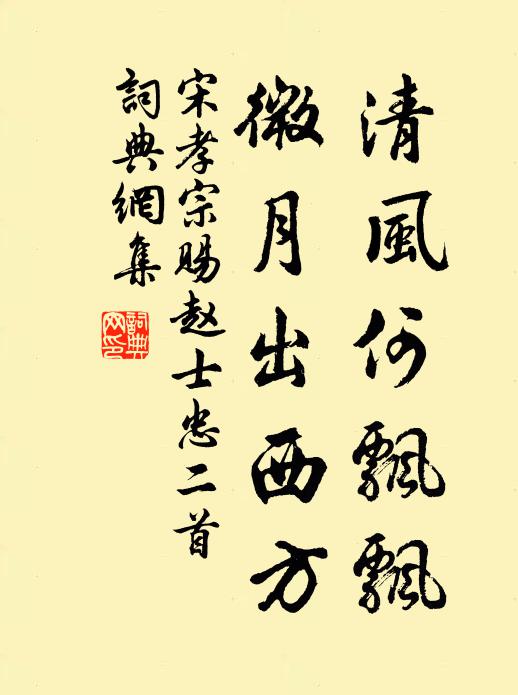 清風何飄飄
微月出西方
宋孝宗賜趙士忠二首
詞典網集
詞典網印